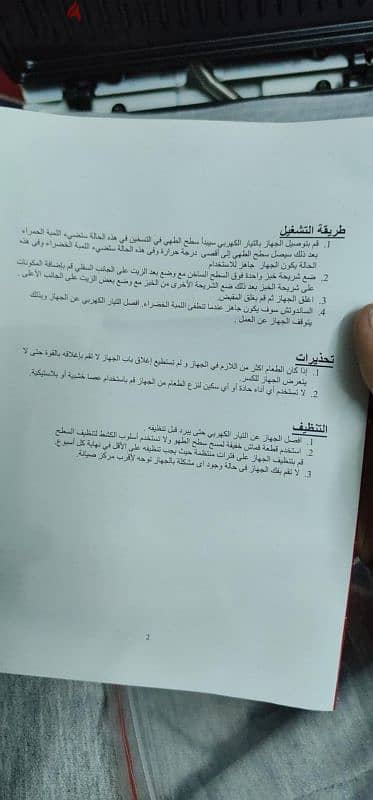 طريقة التشغيل
1. قم بتوصيل الجهاز بالتيار الكهربي سيبدأ سطح الطهي في التسخين في هذه الحالة ستضيء اللمبة الحمراء
بعد ذلك سيصل سطح الطهي إلى أقصى درجة حرارة وفي هذه الحالة ستضيء اللمبة الخضراء وفي هذه
الحالة يكون الجهاز جاهز للاستخدام
2. ضع شريحة خبز واحدة فوق السطح الساخن مع وضع بعد الزيت على الجانب السفلي قم بإضافة المكونات
على شريحة الخبز بعد ذلك ضع الشريحة الأخرى من الخبز مع وضع بعض الزيت على الجانب الأعلى .
3. اغلق الجهاز ثم قم بغلق المقبض.
4. الساندوتش سوف يكون جاهز عندما تنطفئ اللمبة الخضراء. افصل التيار الكهربي عن الجهاز وبذلك
يتوقف الجهاز عن العمل .
تحذيرات
1. إذا كان الطعام اكثر من اللازم في الجهاز و لم تستطيع إغلاق باب الجهاز لا تقم بإغلاقه بالقوة حتى لا
يتعرض الجهاز للكسر.
2. لا تستخدم أي أداه حادة أو أي سكين لنزع الطعام من الجهاز قم باستخدام عصا خشبية أو بلاستيكية.
التنظيف
1. أفصل الجهاز عن التيار الكهربي حتى يبرد قبل تنظيفه .
2. استخدم قطعة قماش خفيفة لمسح سطح الطهو ولا تستخدم أسلوب الكشط لتنظيف السطح
قم بتنظيف الجهاز على فترات منتظمة حيث يجب تنظيفه على الأقل في نهاية كل أسبوع.
3. لا تقم بفك الجهاز في حالة وجود أي مشكلة بالجهاز توجه لأقرب مركز صيانة.
2